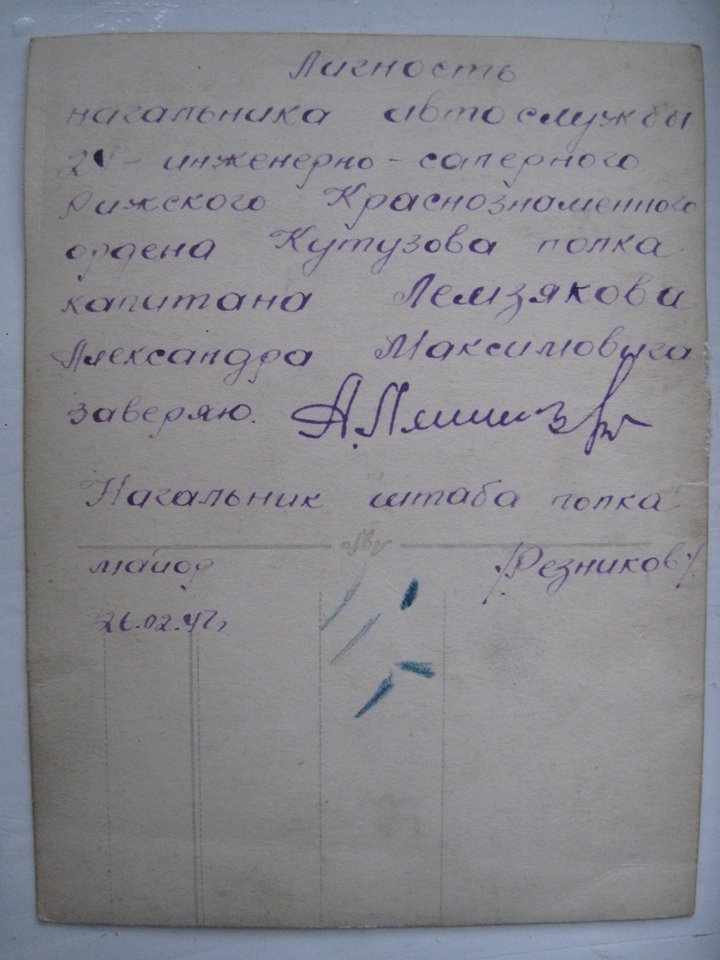 Личность
начальника автослужбы
инженерно-саперного
Рижского Краснознаменного
ордена Кутузова полка
капитана Лемзякова
Александра Максимовича
заверяю.
Начальник штаба полка
майор /Резников/
26.02.47г